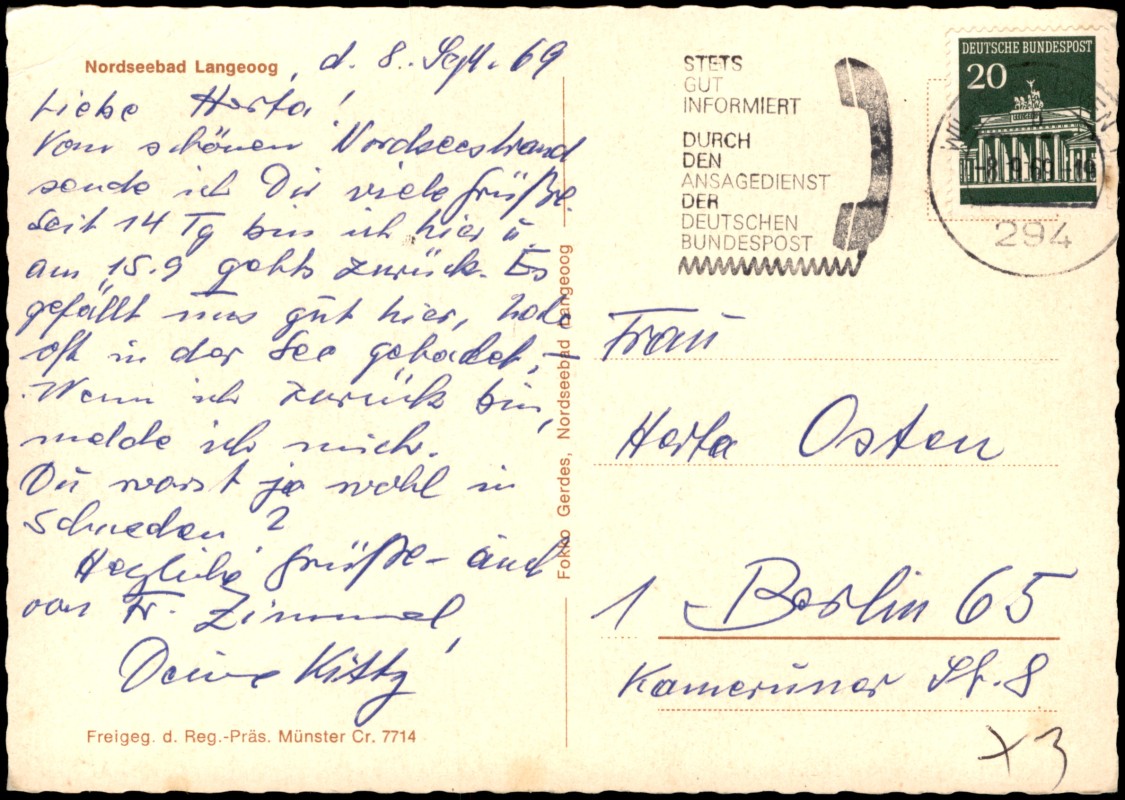 Nordseebad Langeoog, d. 8. Sept. 69
Liebe Herta!
Vom schönen Nordseestrand
sende ich Dir viele Grüße.
Seit 14 Tg bin ich hier u
am 15.9 gehts zurück. Es
gefällt uns gut hier, habe
oft in der See gebadet, –
Wenn ich zurück bin,
melde ich mich.
Du warst ja wohl in
Schweden?
Herzliche Grüße – auch
von Fr. Zimmel,
Deine Kitty
Freigeg. d. Reg.-Präs. Münster Cr. 7714
Fokko Gerdes, Nordseebad Langeoog
STETS
GUT
INFORMIERT
DURCH
DEN
ANSAGEDIENST
DER
DEUTSCHEN
BUNDESPOST
DEUTSCHE BUNDESPOST
20
294
Frau
Herta Osten
1 Berlin 65
Kameruner St. 8
x3